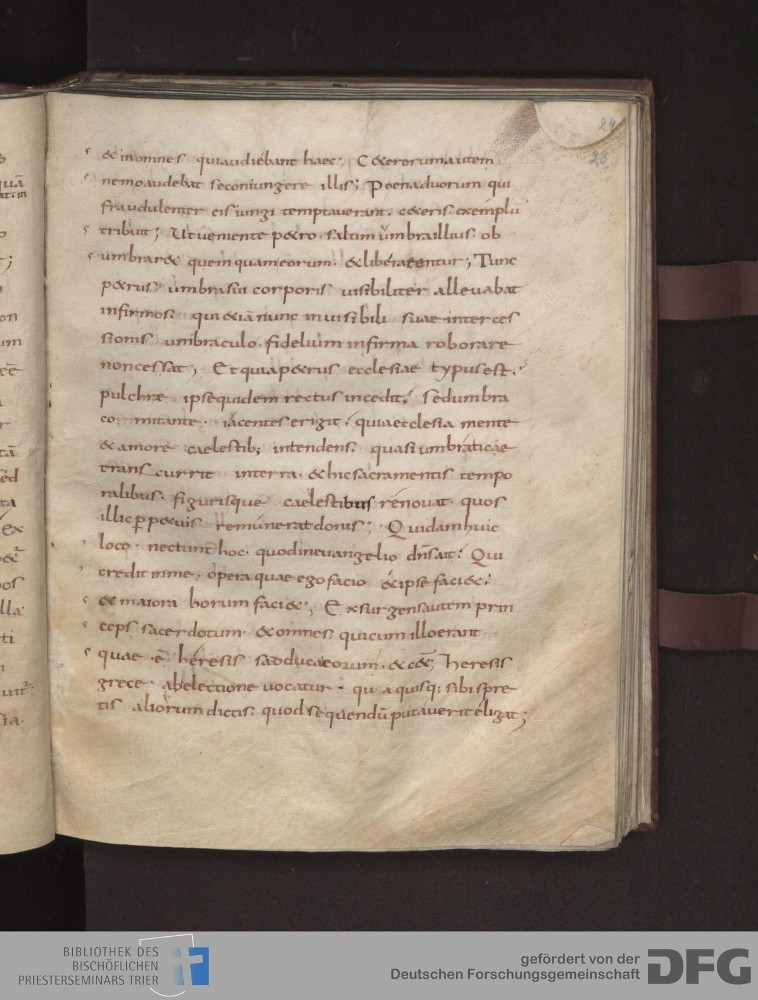 & inomnes quiaudiebant haec; C&erorumautem
nemoaudebat seconiungere illis; Poenaduorum qui
fraudulenter eisiungi temptauerant. c&eris. exemplu
tribuit; Utueniente p&ro. saltim umbraillius. ob
umbrar& quemquameorum. &liberarentur; Tunc
p&rus umbrasui corporis uisibiliter alleuabat
infirmos. qui&iānunc inuisibili suae interces
sionis umbraculo. fidelium infirma roborare
noncessat; Etquiap&rus ecclesiae typusest.
pulchrae ipsequidem rectus incedit. sedumbra
comitante. iacentes erigit. quiaecclesia mente
& amore caelestib; intendens. quasi umbraticae
transcurrit interra. &hicsacramentis tempo
ralibus. figurisque caelestibus renouat. quos
illic ꝑp&uis remuneratdonis; Quidamhuic
loco. nectunt hoc. quodineuangelio dn̄sait. Qui
credit inme. opera quae ego facio &ipse faci&.
& maiora horum faci&; Exsurgensautem prin
ceps sacerdotum. &omnes quicumilloerant
quae .ē. heresis sadducaeorum. & c&̄; heresis
grece. abelectione uocatur. qua quisq; sibi spre
tis aliorum dictis. quod sequendū putauerit eligat;
24
23
quā
ō
on
um
cē
r
tā
ed
ta
Ex
os
llae
ti
BIBLIOTHEK DES
BISCHÖFLICHEN
PRIESTERSEMINARS TRIER
gefördert von der
Deutschen Forschungsgemeinschaft
DFG